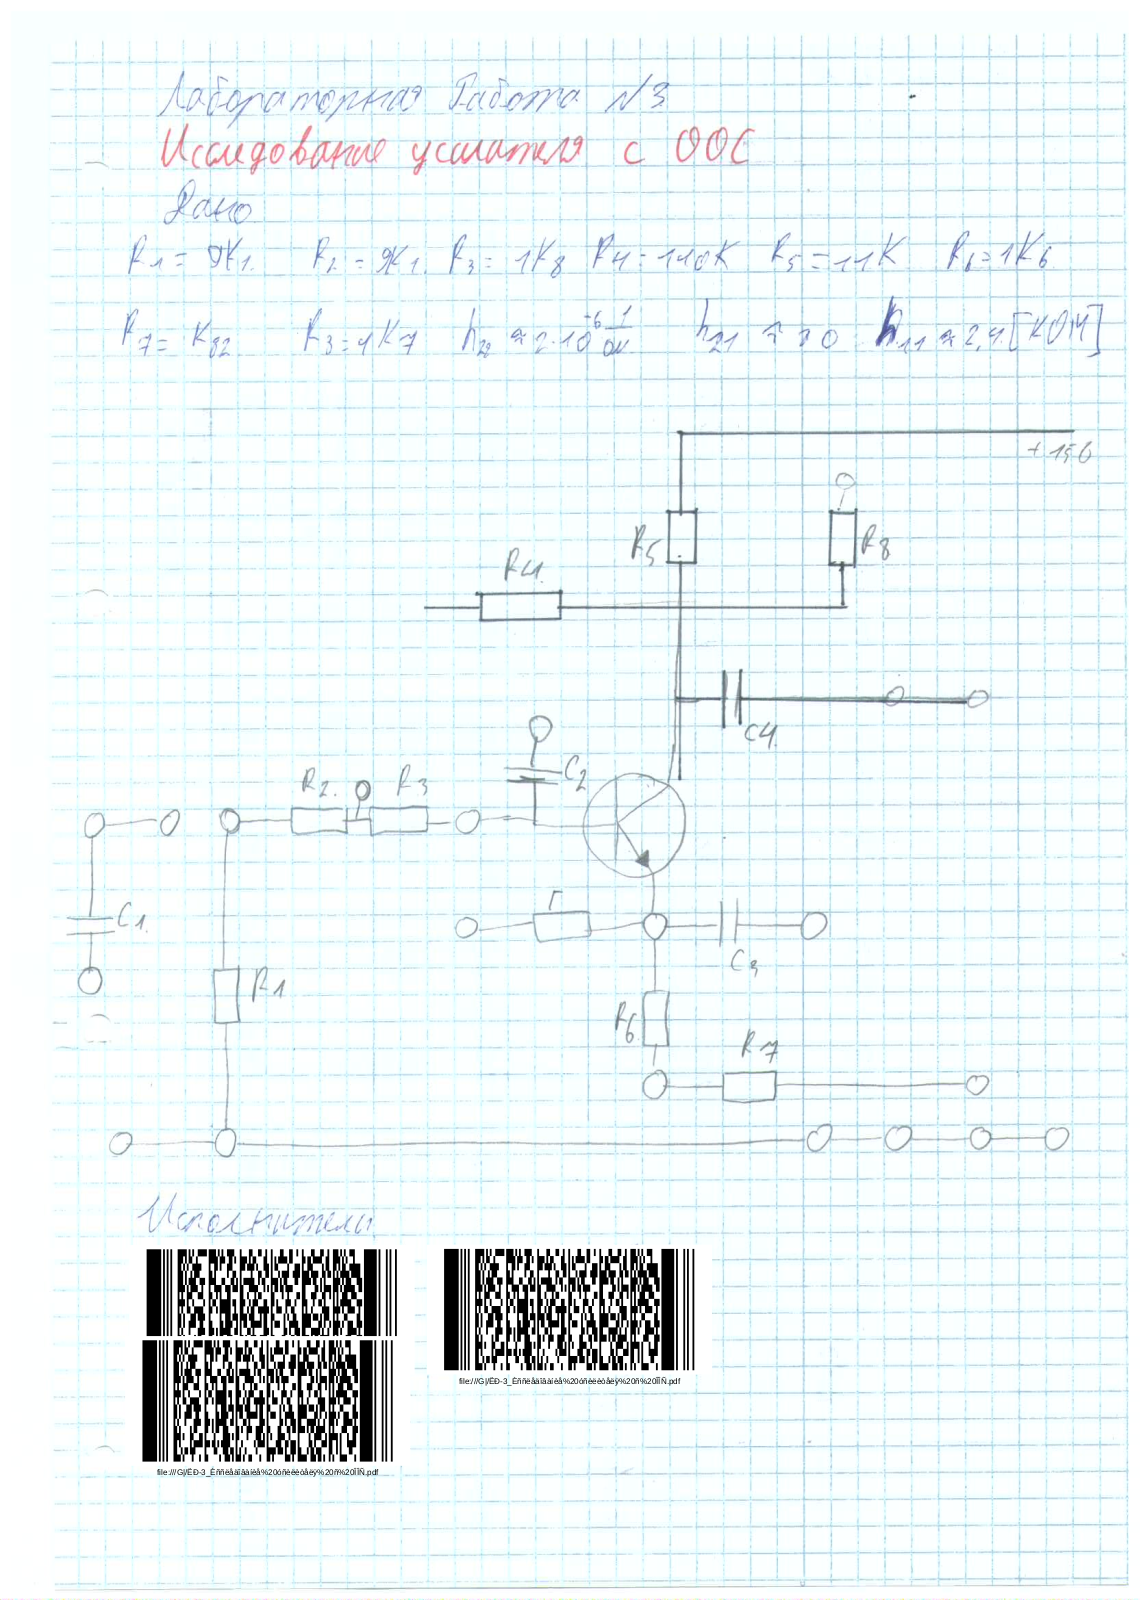 Лабораторная Работа №3
Исследование усилителя с ООС
Дано
R1 = 9К1 R2 = 9К1 R3 = 1К8 R4 = 110К R5 = 11К R6 = 1К6
R7 = К82 R3 = 4К7 h22 ≈ 2·10^-6 1/Ом h21 ≈ h11 ≈ 2,4 [КОМ]
+15В
R5
R8
R4
C4
C2
R2 R3
C1
r
C3
R1
R6
R7
Исполнители
file:///G|/ËÐ-3_Èññëåäîâàíèå%20óñèëèòåëÿ%20ñ%20ÎÎÑ.pdf
file:///G|/ËÐ-3_Èññëåäîâàíèå%20óñèëèòåëÿ%20ñ%20ÎÎÑ.pdf